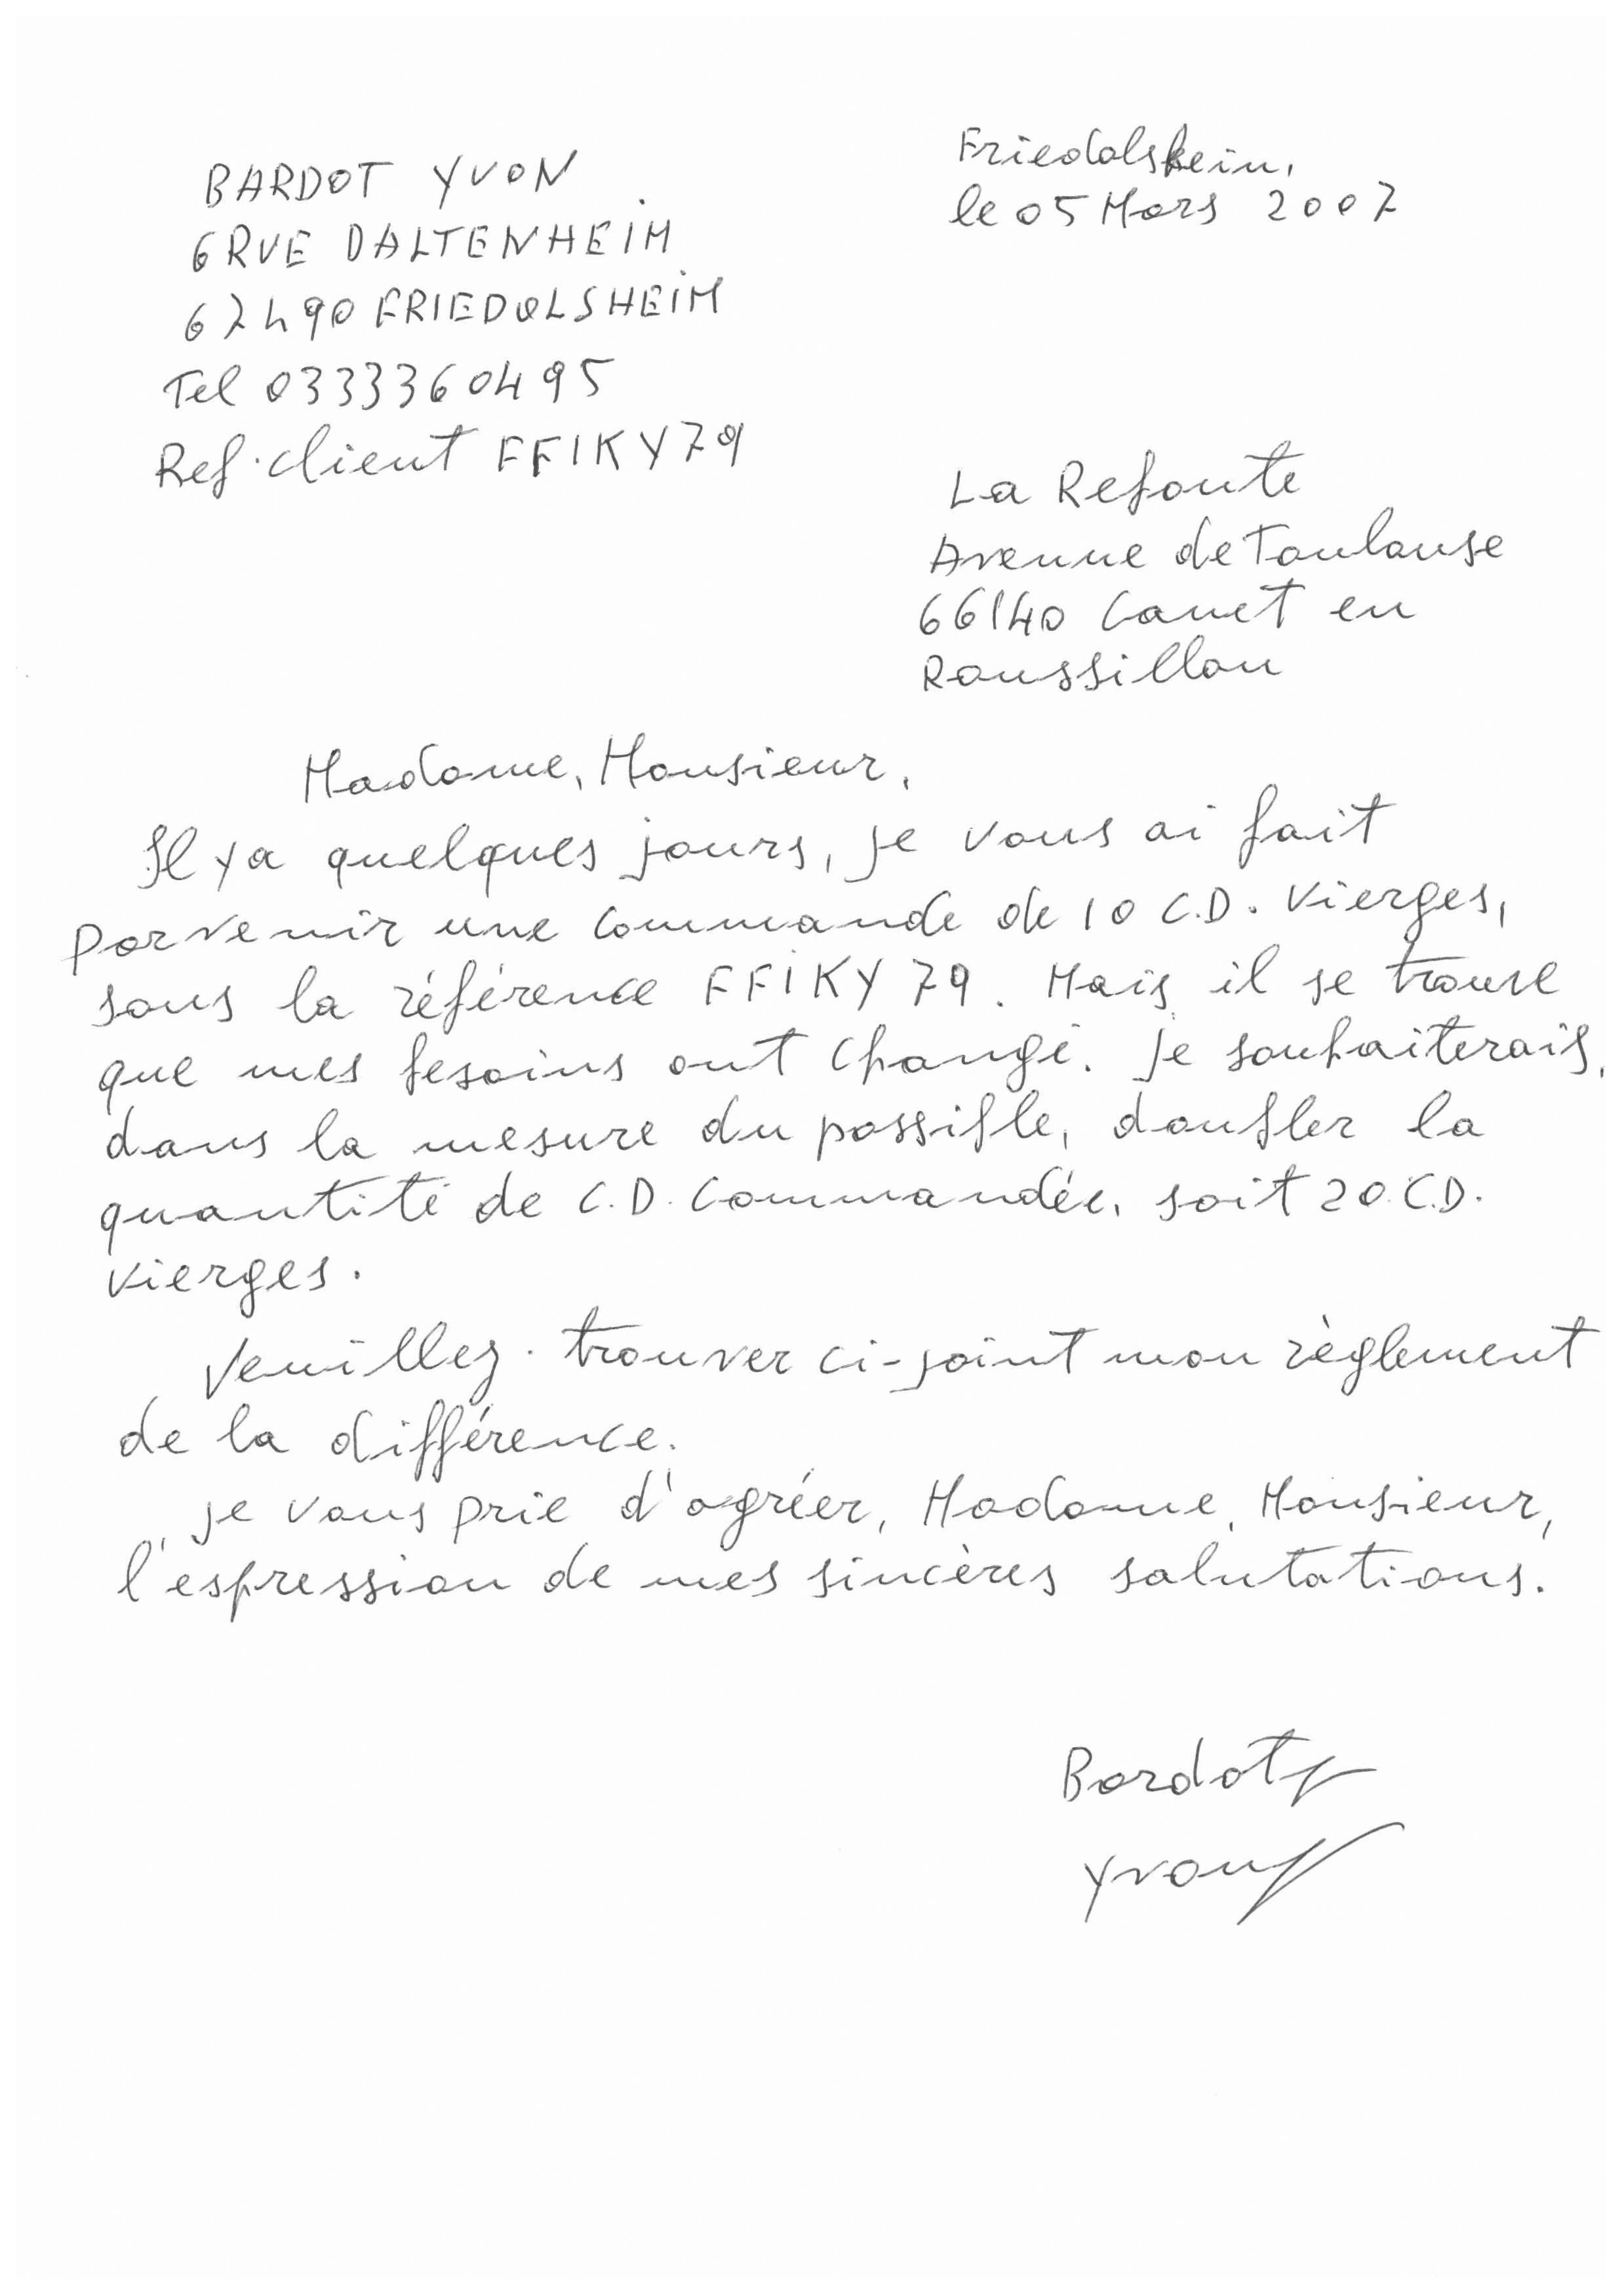 BARDOT YVON
6 RUE DALTENHEIM
67490 FRIEDOLSHEIM
Tel 0333360495
Ref. client FFIKY79
Friedolshein,
le 05 Mars 2007
La Refoute
Avenue de Toulouse
66140 Canet en
Roussillon
Madame, Monsieur,
Il y a quelques jours, je vous ai fait
parvenir une commande de 10 C.D. vierges,
sous la référence FFIKY 79. Mais il se trouve
que mes besoins ont changé. Je souhaiterais,
dans la mesure du possible, doubler la
quantité de C.D. commandée, soit 20 C.D.
vierges.
Veuillez trouver ci-joint mon règlement
de la différence.
Je vous prie d'agréer, Madame, Monsieur,
l'expression de mes sincères salutations.
Bardot
Yvon